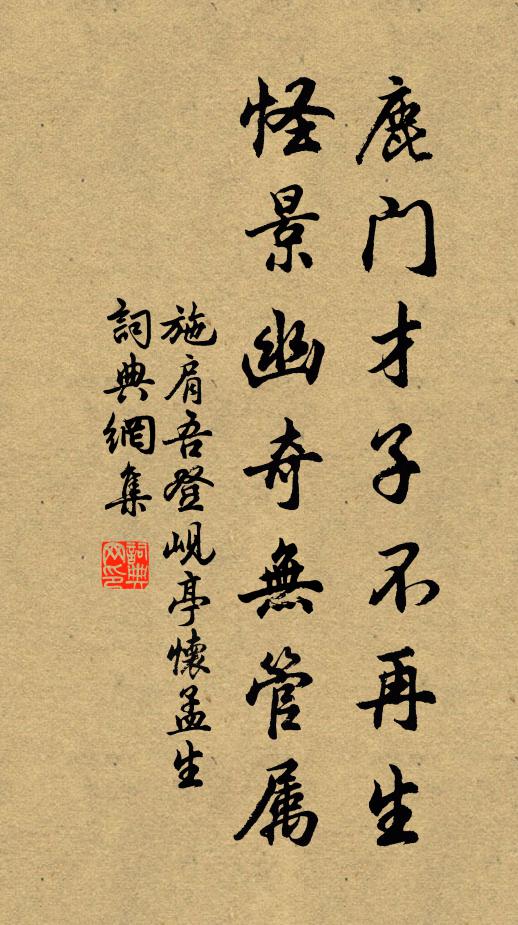 鹿門才子不再生
怪景幽奇無管属
施肩吾登峴亭懷孟生
詞典網集
詞典網印